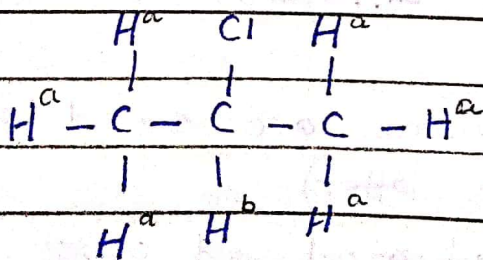 Hᵃ Cl Hᵃ
Hᵃ – C – C – C – Hᵃ
Hᵃ Hᵇ Hᵃ